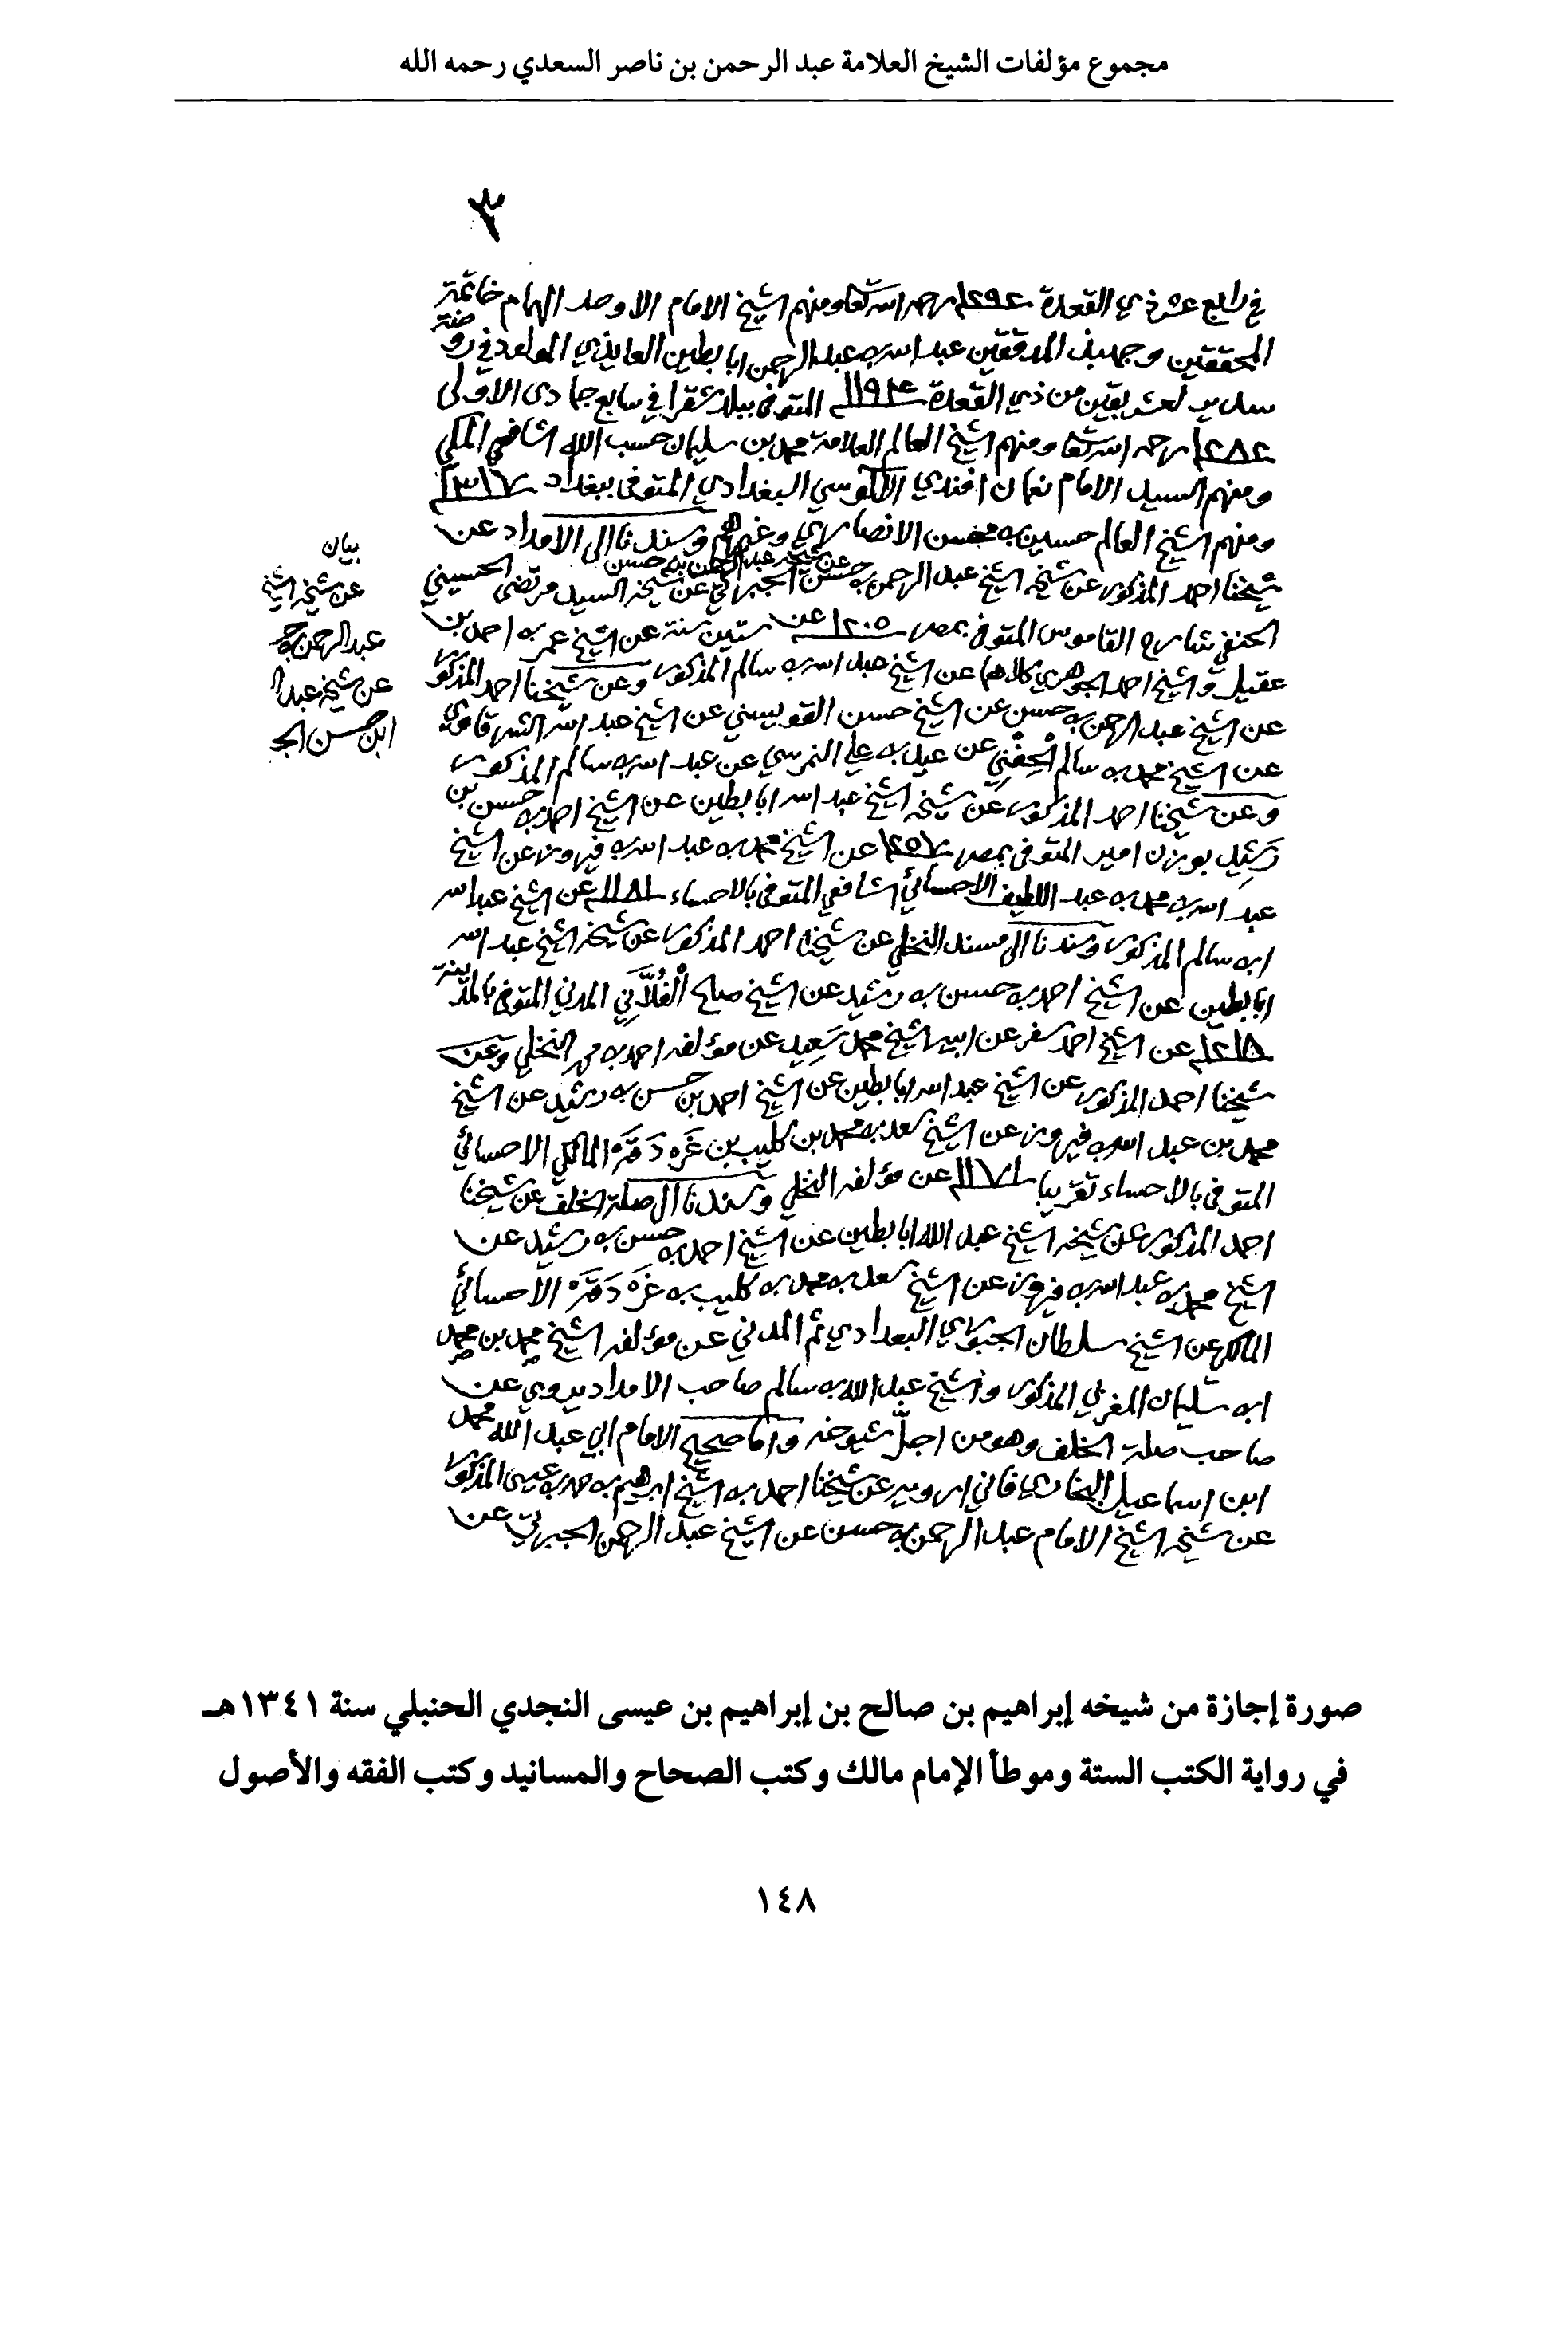 مجموع مؤلفات الشيخ العلامة عبد الرحمن بن ناصر السعدي رحمه الله
٣
في رابع عشر ذي القعدة ١٢٩٣ رحمه الله تعالى ومنهم الشيخ الامام الاوحد الهمام خاتمة
المحققين وجهبذ المدققين عبد الله بن عبد الرحمن ابا بطين العايذي المولود في روضة
سدير لعشر بقين من ذي القعدة ١١٩٤ المتوفى ببلد شقرا في سابع جمادى الاولى
١٢٨٢ رحمه الله تعالى ومنهم الشيخ العالم العلامة محمد بن سليمان حسب الله الشافعي المكي
ومنهم السيد الامام نعمان افندي الآلوسي البغدادي المتوفى ببغداد ١٣١٧
ومنهم الشيخ العالم حسين بن محسن الانصاري وغيرهم وسندنا الى الامداد عن
شيخنا احمد المذكور عن شيخه الشيخ عبد الرحمن بن حسن عن شيخه عبد الرحمن بن حسن الجبرتي عن شيخه السيد مرتضى الحسيني
الحنفي شارح القاموس المتوفى بمصر ١٢٠٥ عن ستين سنة عن الشيخ عمر بن احمد بن
عقيل والشيخ احمد الجوهري كلاهما عن الشيخ عبد الله بن سالم المذكور وعن شيخنا احمد المذكور
عن الشيخ عبد الرحمن بن حسن عن الشيخ حسن القويسني عن الشيخ عبد الله الشرقاوي
عن الشيخ محمد بن سالم الحفني عن عيد بن علي النمرسي عن عبد الله بن سالم المذكور
وعن شيخنا احمد المذكور عن شيخه الشيخ عبد الله ابا بطين عن الشيخ احمد بن حسن بن
رشيد المتوفى بمصر ١٢٥٧ عن الشيخ محمد بن عبد الله بن فيروز عن الشيخ
عبد الله بن محمد بن عبد اللطيف الاحسائي الشافعي المتوفى بالاحساء ١١٨١ عن الشيخ عبد الله
ابن سالم المذكور وسندنا الى مسند النخلي عن شيخنا احمد المذكور عن شيخه الشيخ عبد الله
ابا بطين عن الشيخ احمد بن حسن بن رشيد عن الشيخ صالح الفلّاني المدني المتوفى بالمدينة
١٢١٨ عن الشيخ احمد سفر عن ابيه الشيخ محمد سعيد عن مؤلفه احمد بن محمد النخلي وعن
شيخنا احمد المذكور عن الشيخ عبد الله ابا بطين عن الشيخ احمد بن حسن بن رشيد عن الشيخ
محمد بن عبد الله بن فيروز عن الشيخ سعد بن محمد بن كليب بن غره دقه المالكي الاحسائي
المتوفى بالاحساء تقريبا ١١٧١ عن مؤلفه النخلي وسندنا الى صلة الخلف عن شيخنا
احمد المذكور عن شيخه الشيخ عبد الله ابا بطين عن الشيخ احمد بن حسن بن رشيد عن
الشيخ محمد بن عبد الله بن فيروز عن الشيخ سعد بن محمد بن كليب بن غره دقه الاحسائي
المالكي عن الشيخ سلطان الجبوري البغدادي ثم المدني عن مؤلفه الشيخ محمد بن محمد
ابن سليمان المغربي المذكور والشيخ عبد الله بن سالم صاحب الامداد يروي عن
صاحب صلة الخلف وهو من اجلّ شيوخه واما صحيح الامام ابي عبد الله محمد
ابن اسماعيل البخاري فاني ارويه عن شيخنا احمد بن الشيخ ابراهيم بن حمد بن عيسى المذكور
عن شيخه الشيخ الامام عبد الرحمن بن حسن عن الشيخ عبد الرحمن الجبرتي عن
بيان
عن شيخه الشيخ
عبد الرحمن بن ح
عن شيخه عبد ا
ابن حسن الج
صورة إجازة من شيخه إبراهيم بن صالح بن إبراهيم بن عيسى النجدي الحنبلي سنة ١٣٤١هـ
في رواية الكتب الستة وموطأ الإمام مالك وكتب الصحاح والمسانيد وكتب الفقه والأصول
١٤٨